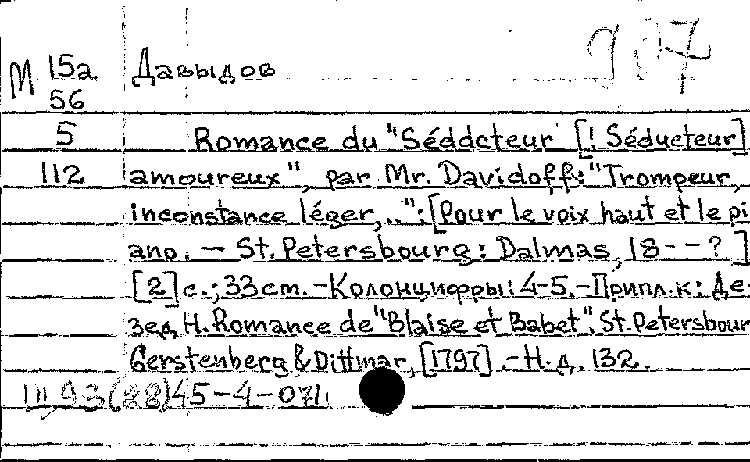 М 15а Давыдов
56
5 Romance du "Séddcteur [! Séducteur]
112 amoureux", par Mr. Davidoff: "Trompeur,
inconstance léger,..": [Pour le voix haut et le pi
ano. — St. Petersbourg: Dalmas, 18--?]
[2] с.; 33 cm. - Колонцифры: 4-5. - Припл. к: Де
зед Н. Romance de "Blaise et Babet". St. Petersbour
Gerstenberg & Dittmar, [1797]. - Н.д. 132.
93(88)45-4-071